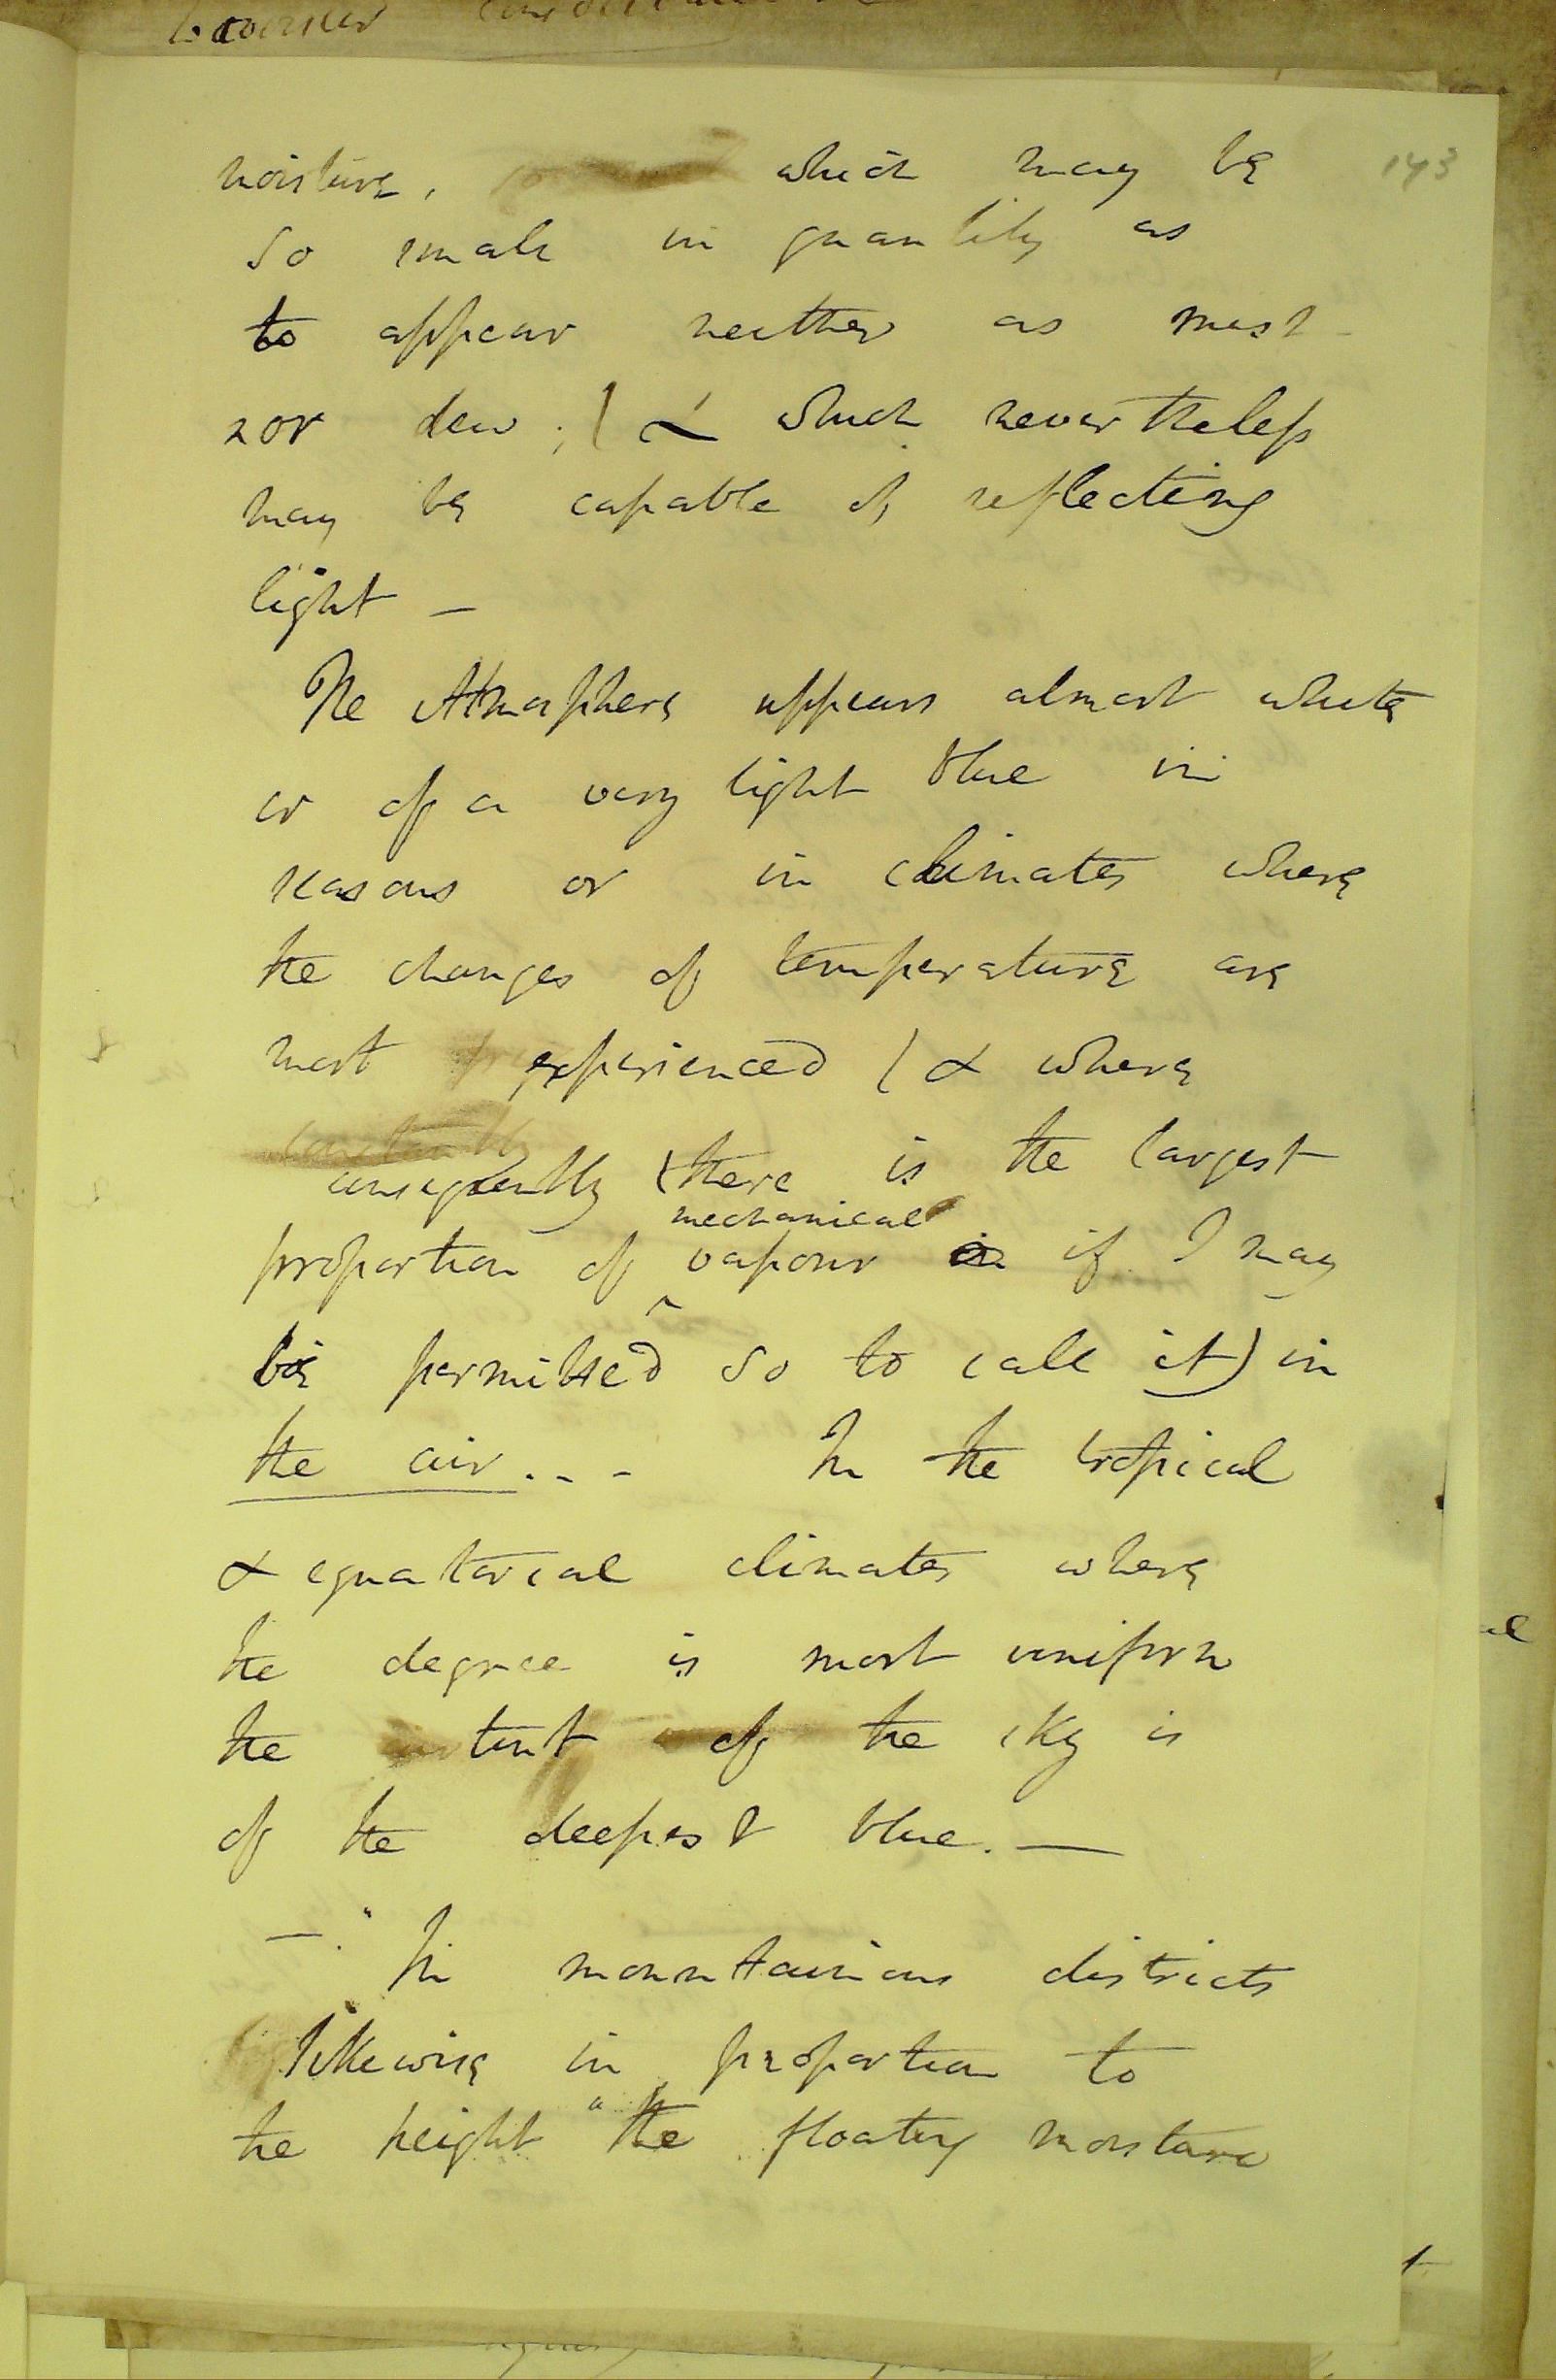 143
moisture, which may be
so small in quantity as
to appear neither as mist
nor dew; / & which nevertheless
may be capable of reflecting
light —
The Atmosphere appears almost white
or of a very light blue in
seasons or in climates where
the changes of temperature are
most experienced ( & where
consequently (there is the largest
mechanical
proportion of ^ vapour if I may
be permitted so to call it) in
the air... In the tropical
& equatorial climates where
the degree is most uniform
the tint of the sky is
of the deepest blue. —
—." In mountainious districts
likewise in proportion to
the height " the floating moisture